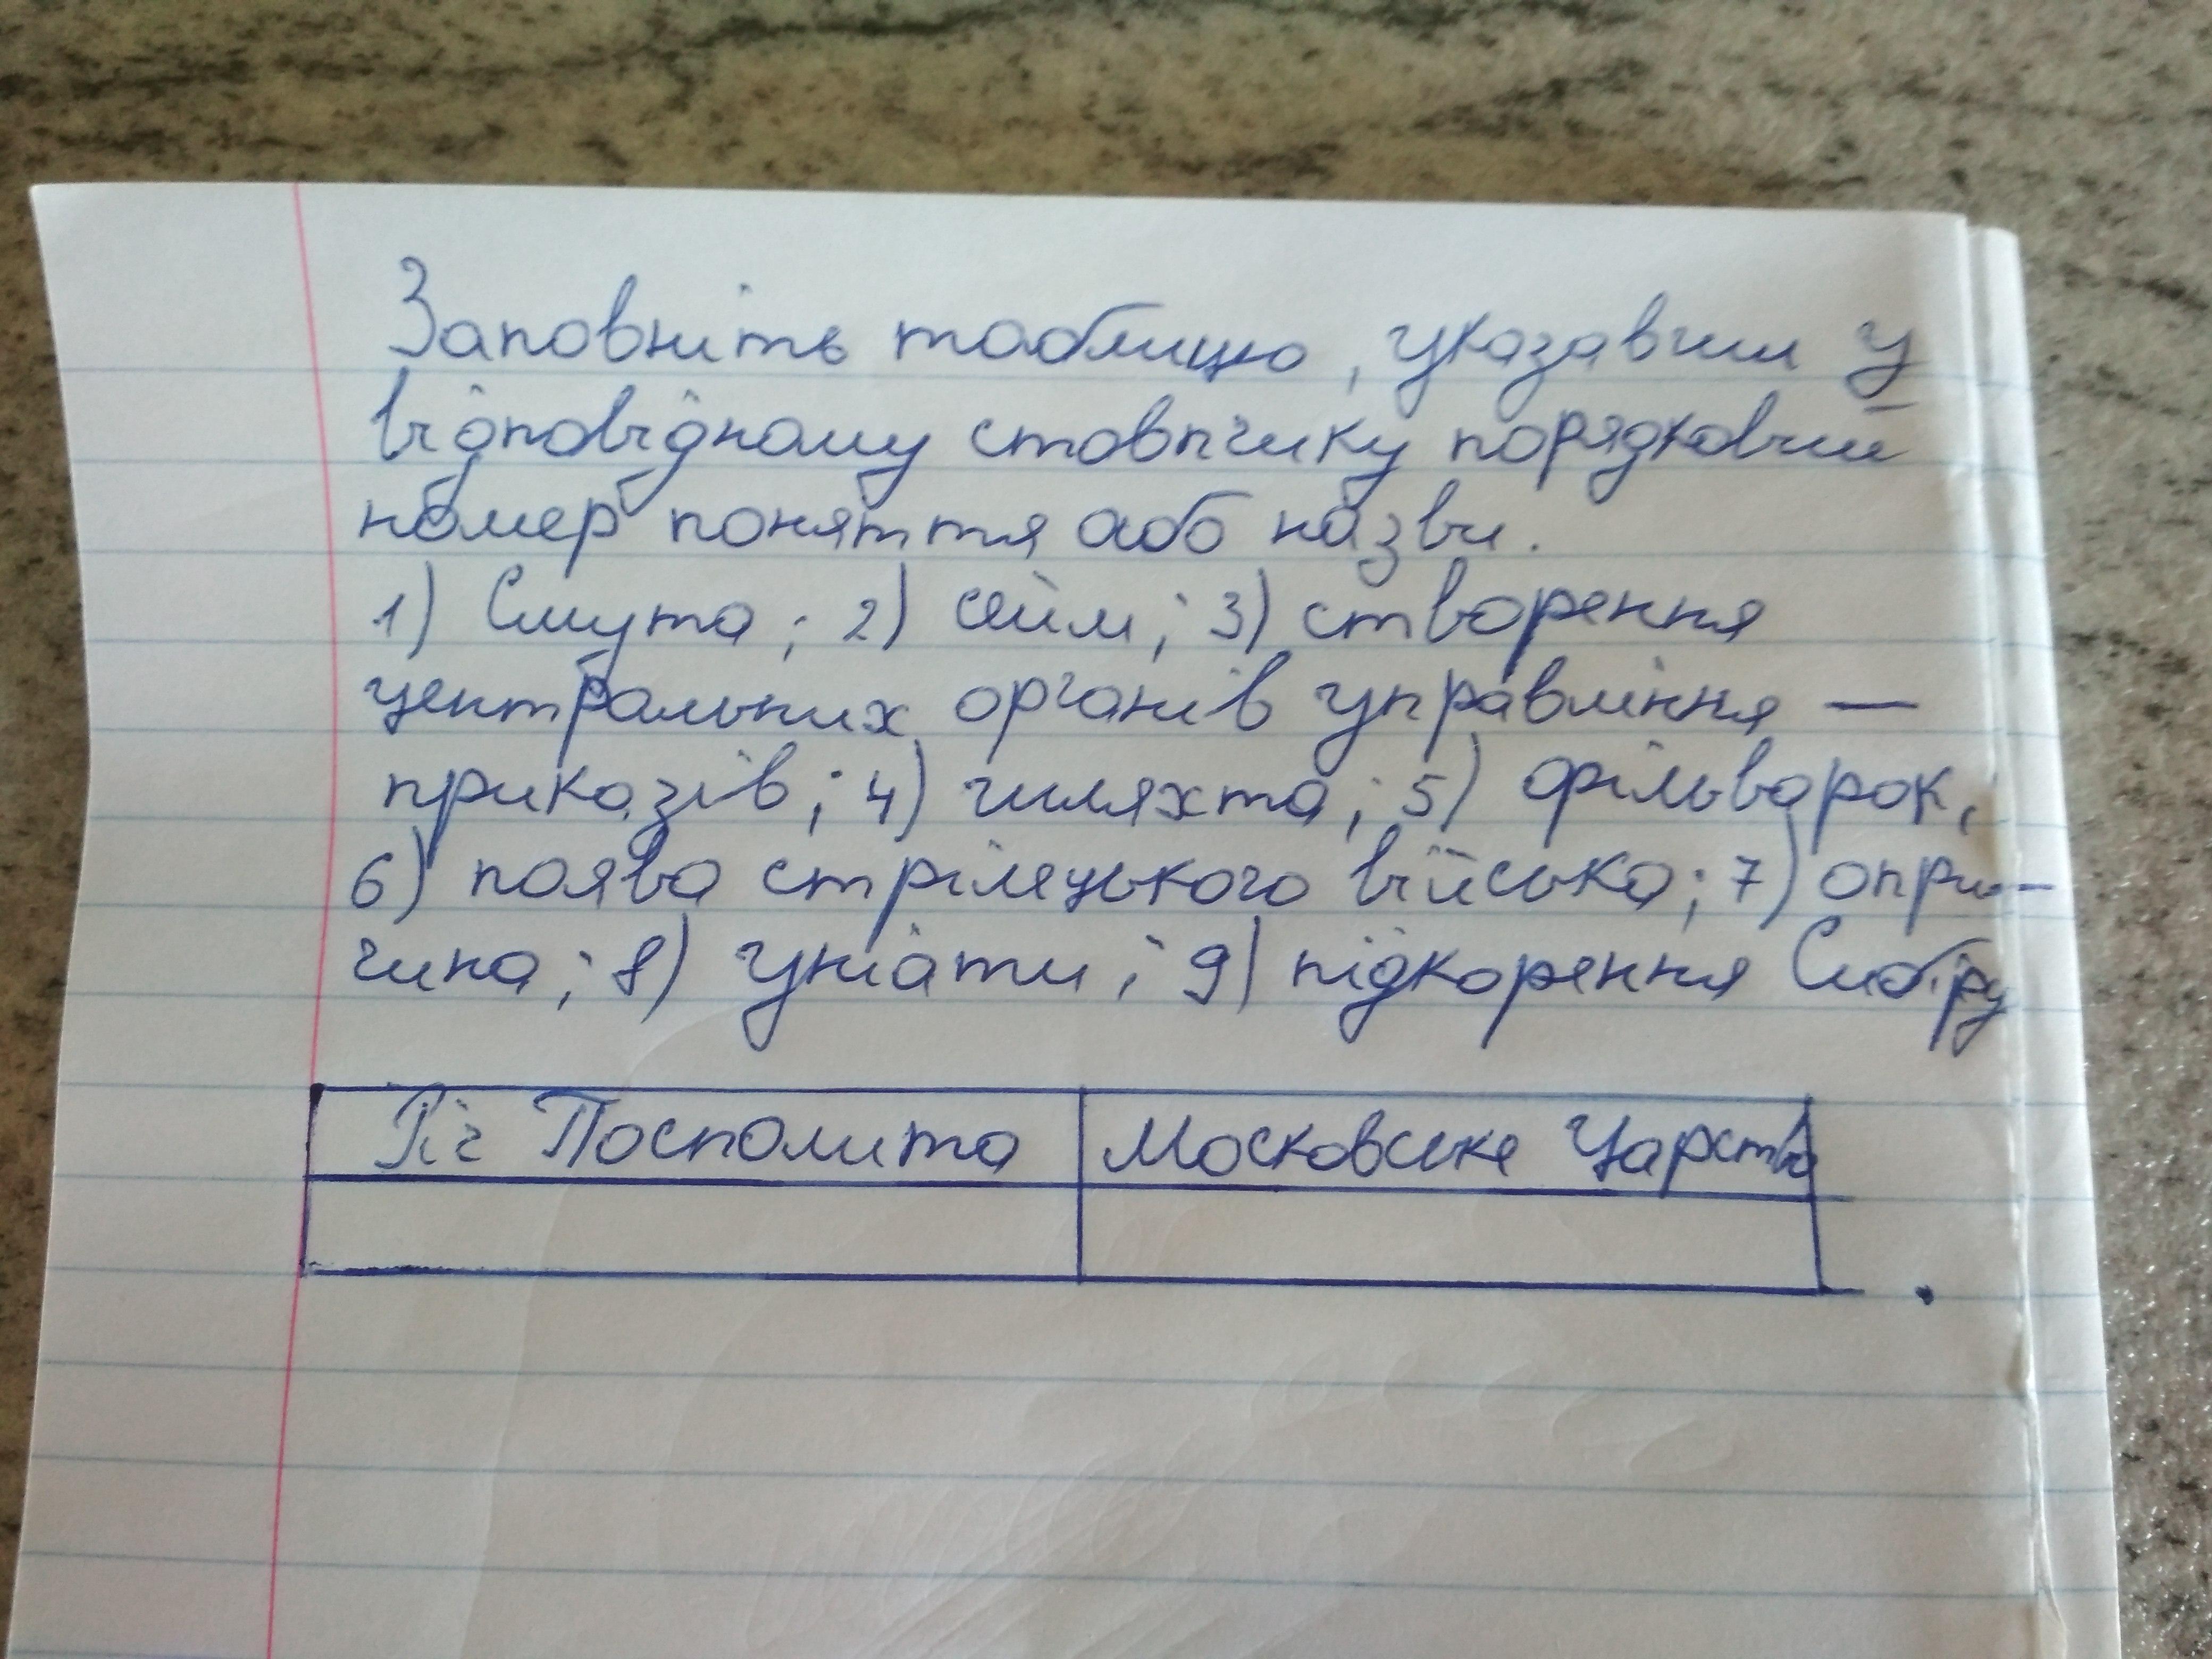 Заповніть таблицю, указавши у
відповідному стовпчику порядковий
номер поняття або назви.
1) Смута; 2) сейм; 3) створення
центральних органів управління —
приказів; 4) шляхта; 5) фільварок;
6) поява стрілецького війська; 7) опри-
чина; 8) уніати; 9) підкорення Сибіру
Річ Посполита Московське царство